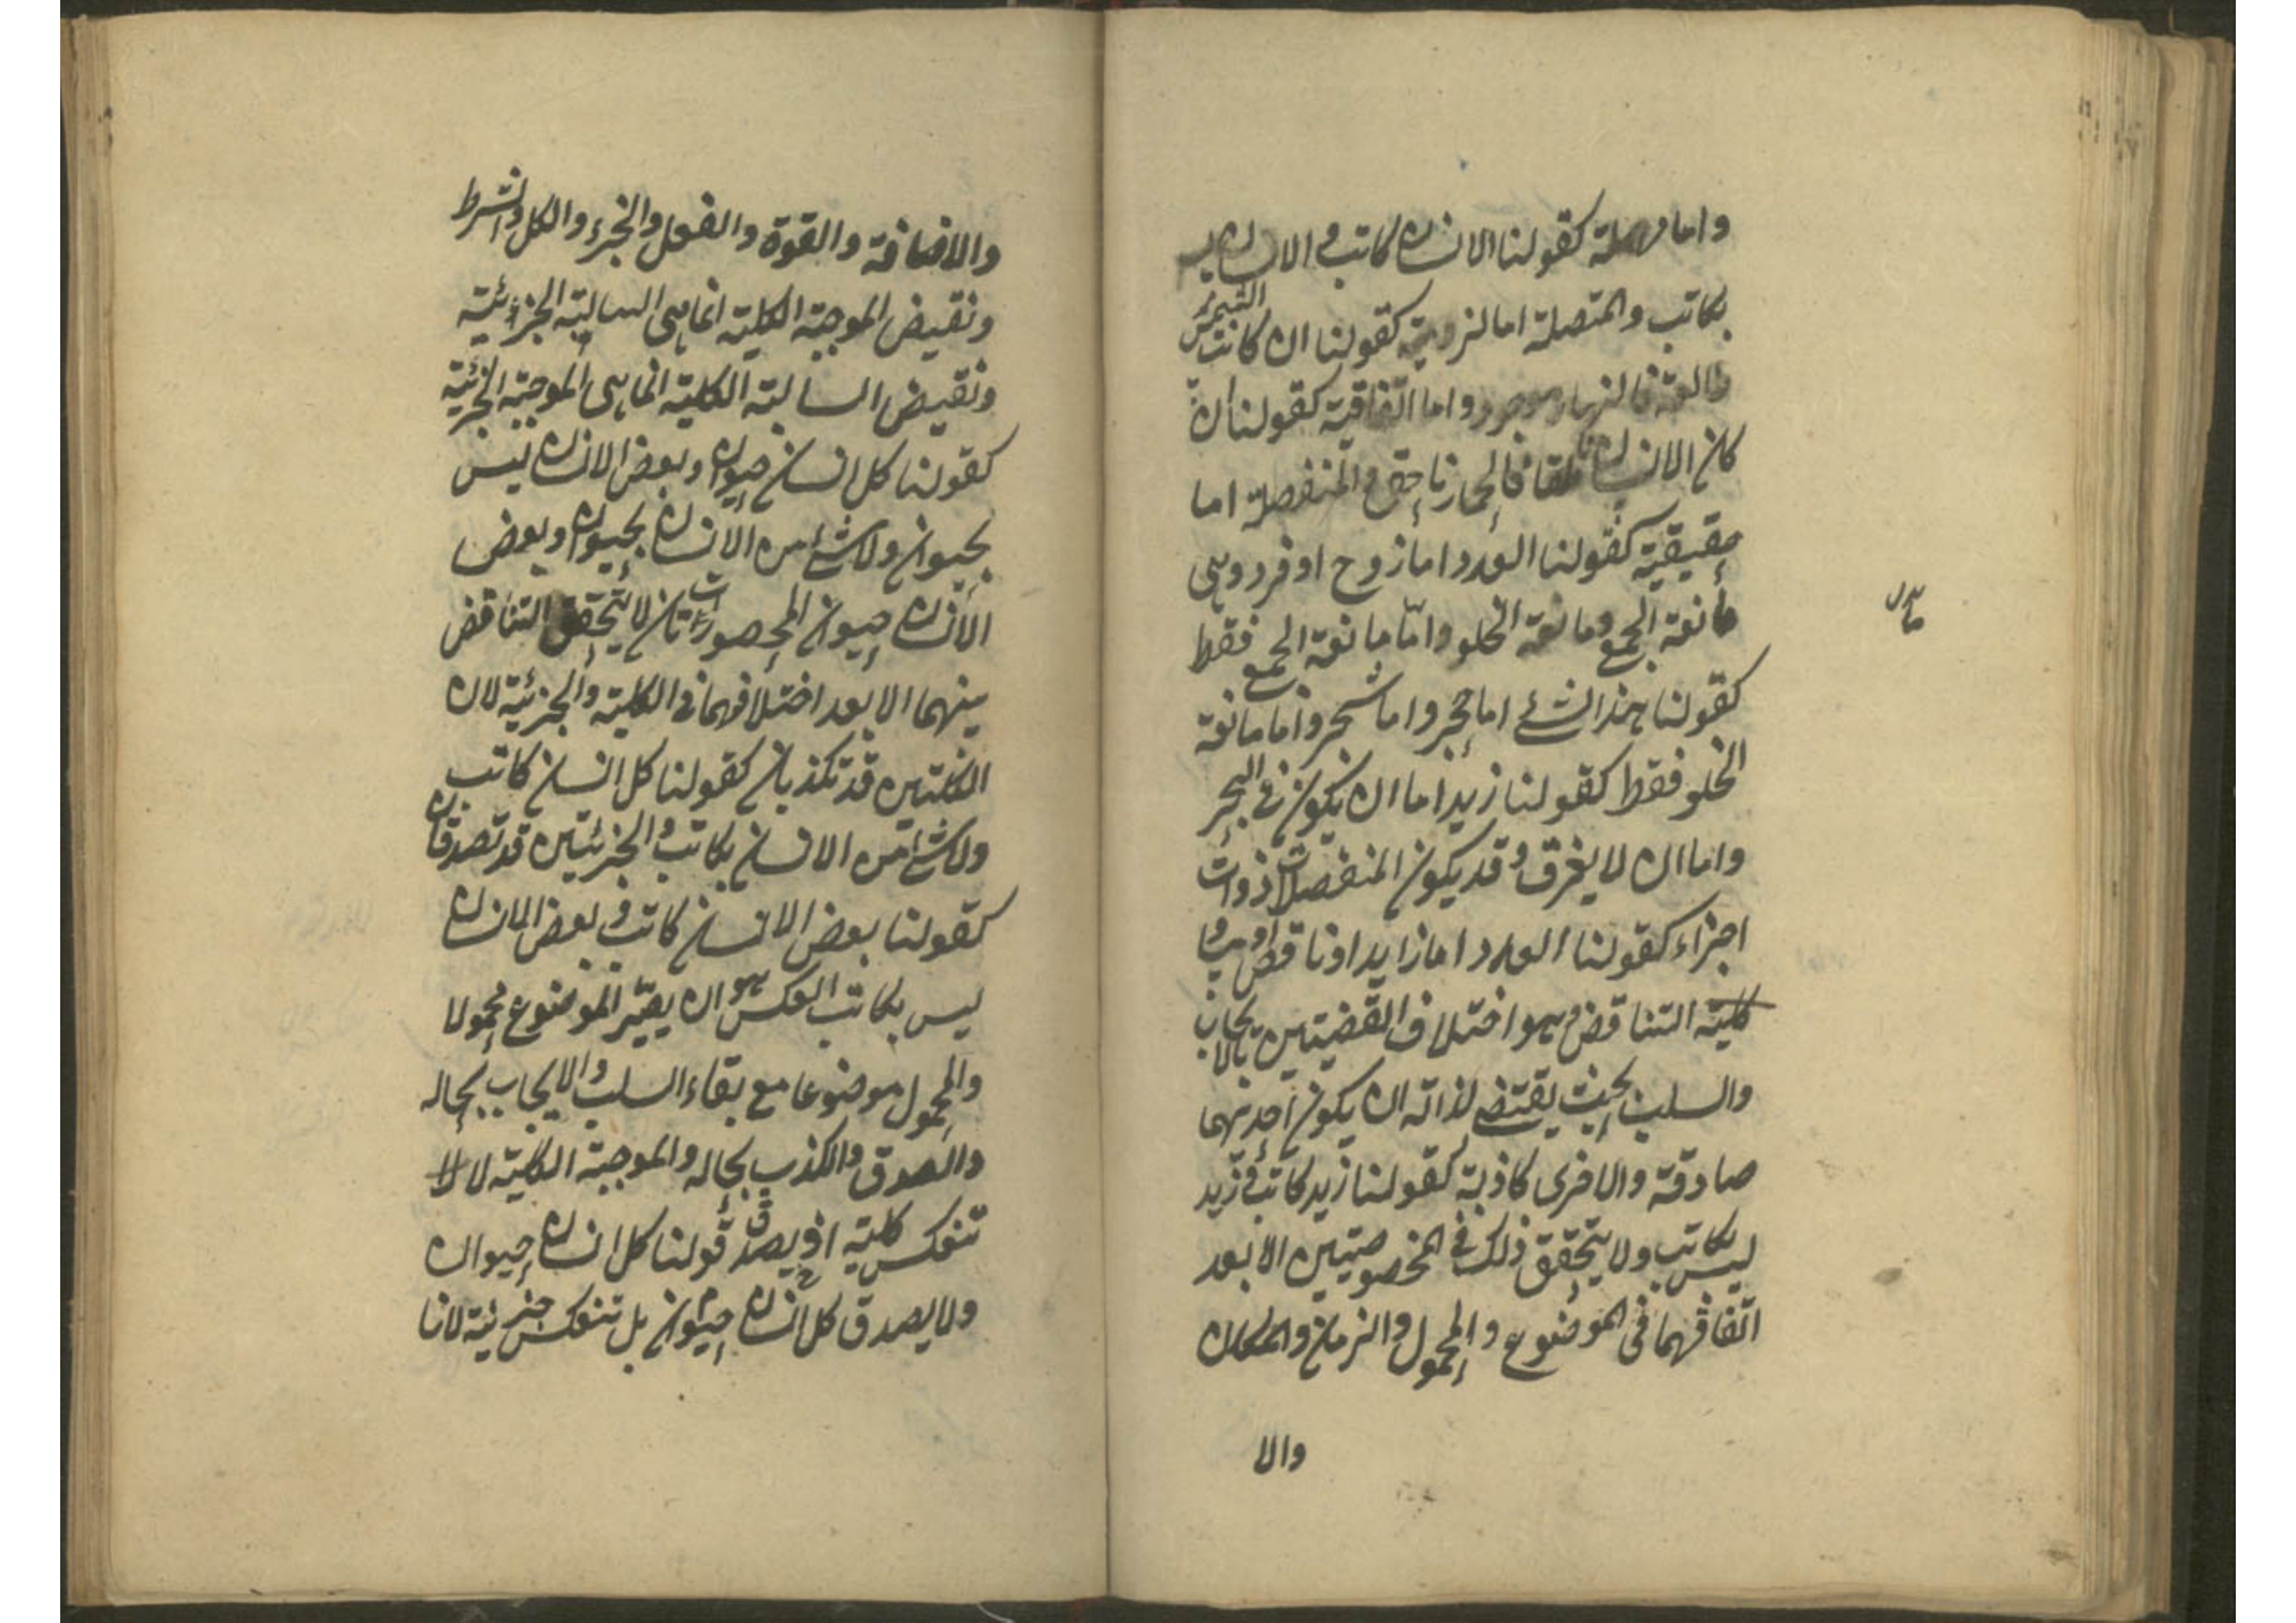 واما مهملة كقولنا الانسان كاتب والانسان ليس
بكاتب والمتصلة اما لزومية كقولنا ان كانت الشمس
طالعة فالنهار موجود واما اتفاقية كقولنا ان
كان الانسان ناطقا فالحمار ناهق والمنفصلة اما
حقيقية كقولنا العدد اما زوج او فرد وهى
مانعة الجمع ومانعة الخلو وامّا مانعة الجمع فقط
كقولنا هذا الشئ اما حجر واما شجر واما مانعة
الخلو فقط كقولنا زيد اما ان يكون فى البحر
واما ان لا يغرق وقد يكون المنفصلات ذوات
اجزاء كقولنا العدد اما زايد او ناقص او مساو
كلية التناقض هو اختلاف القضيتين بالايجاب
والسلب بحيث يقتضى لذاته ان يكون احديهما
صادقة والاخرى كاذبة كقولنا زيد كاتب وزيد
ليس بكاتب ولا يتحقق ذلك فى المخصوصتين الا بعد
اتّفاقهما فى الموضوع والمحمول والزمان والمكان
والا
والاضافة والقوة والفعل والجزء والكل والشرط
ونقيض الموجبة الكلية انما هى السالبة الجزئية
ونقيض السالبة الكلية انما هى الموجبة الجزئية
كقولنا كل انسان حيوان وبعض الانسان ليس
بحيوان ولا شئ من الانسان بحيوان وبعض
الانسان حيوان المحصورتان لا يتحقق التناقض
بينهما الا بعد اختلافهما فى الكلية والجزئية لان
الكليتين قد تكذبان كقولنا كل انسان كاتب
ولا شئ من الانسان بكاتب والجزئيتين قد تصدقان
كقولنا بعض الانسان كاتب وبعض الانسان
ليس بكاتب العكس هو ان يصيّر الموضوع محمولا
والمحمول موضوعا مع بقاء السلب والايجاب بحاله
والصدق والكذب بحاله والموجبة الكلية لا
تنعكس كلية اذ يصدق قولنا كل انسان حيوان
ولا يصدق كل انسان حيوان بل تنعكس جزئية لانا